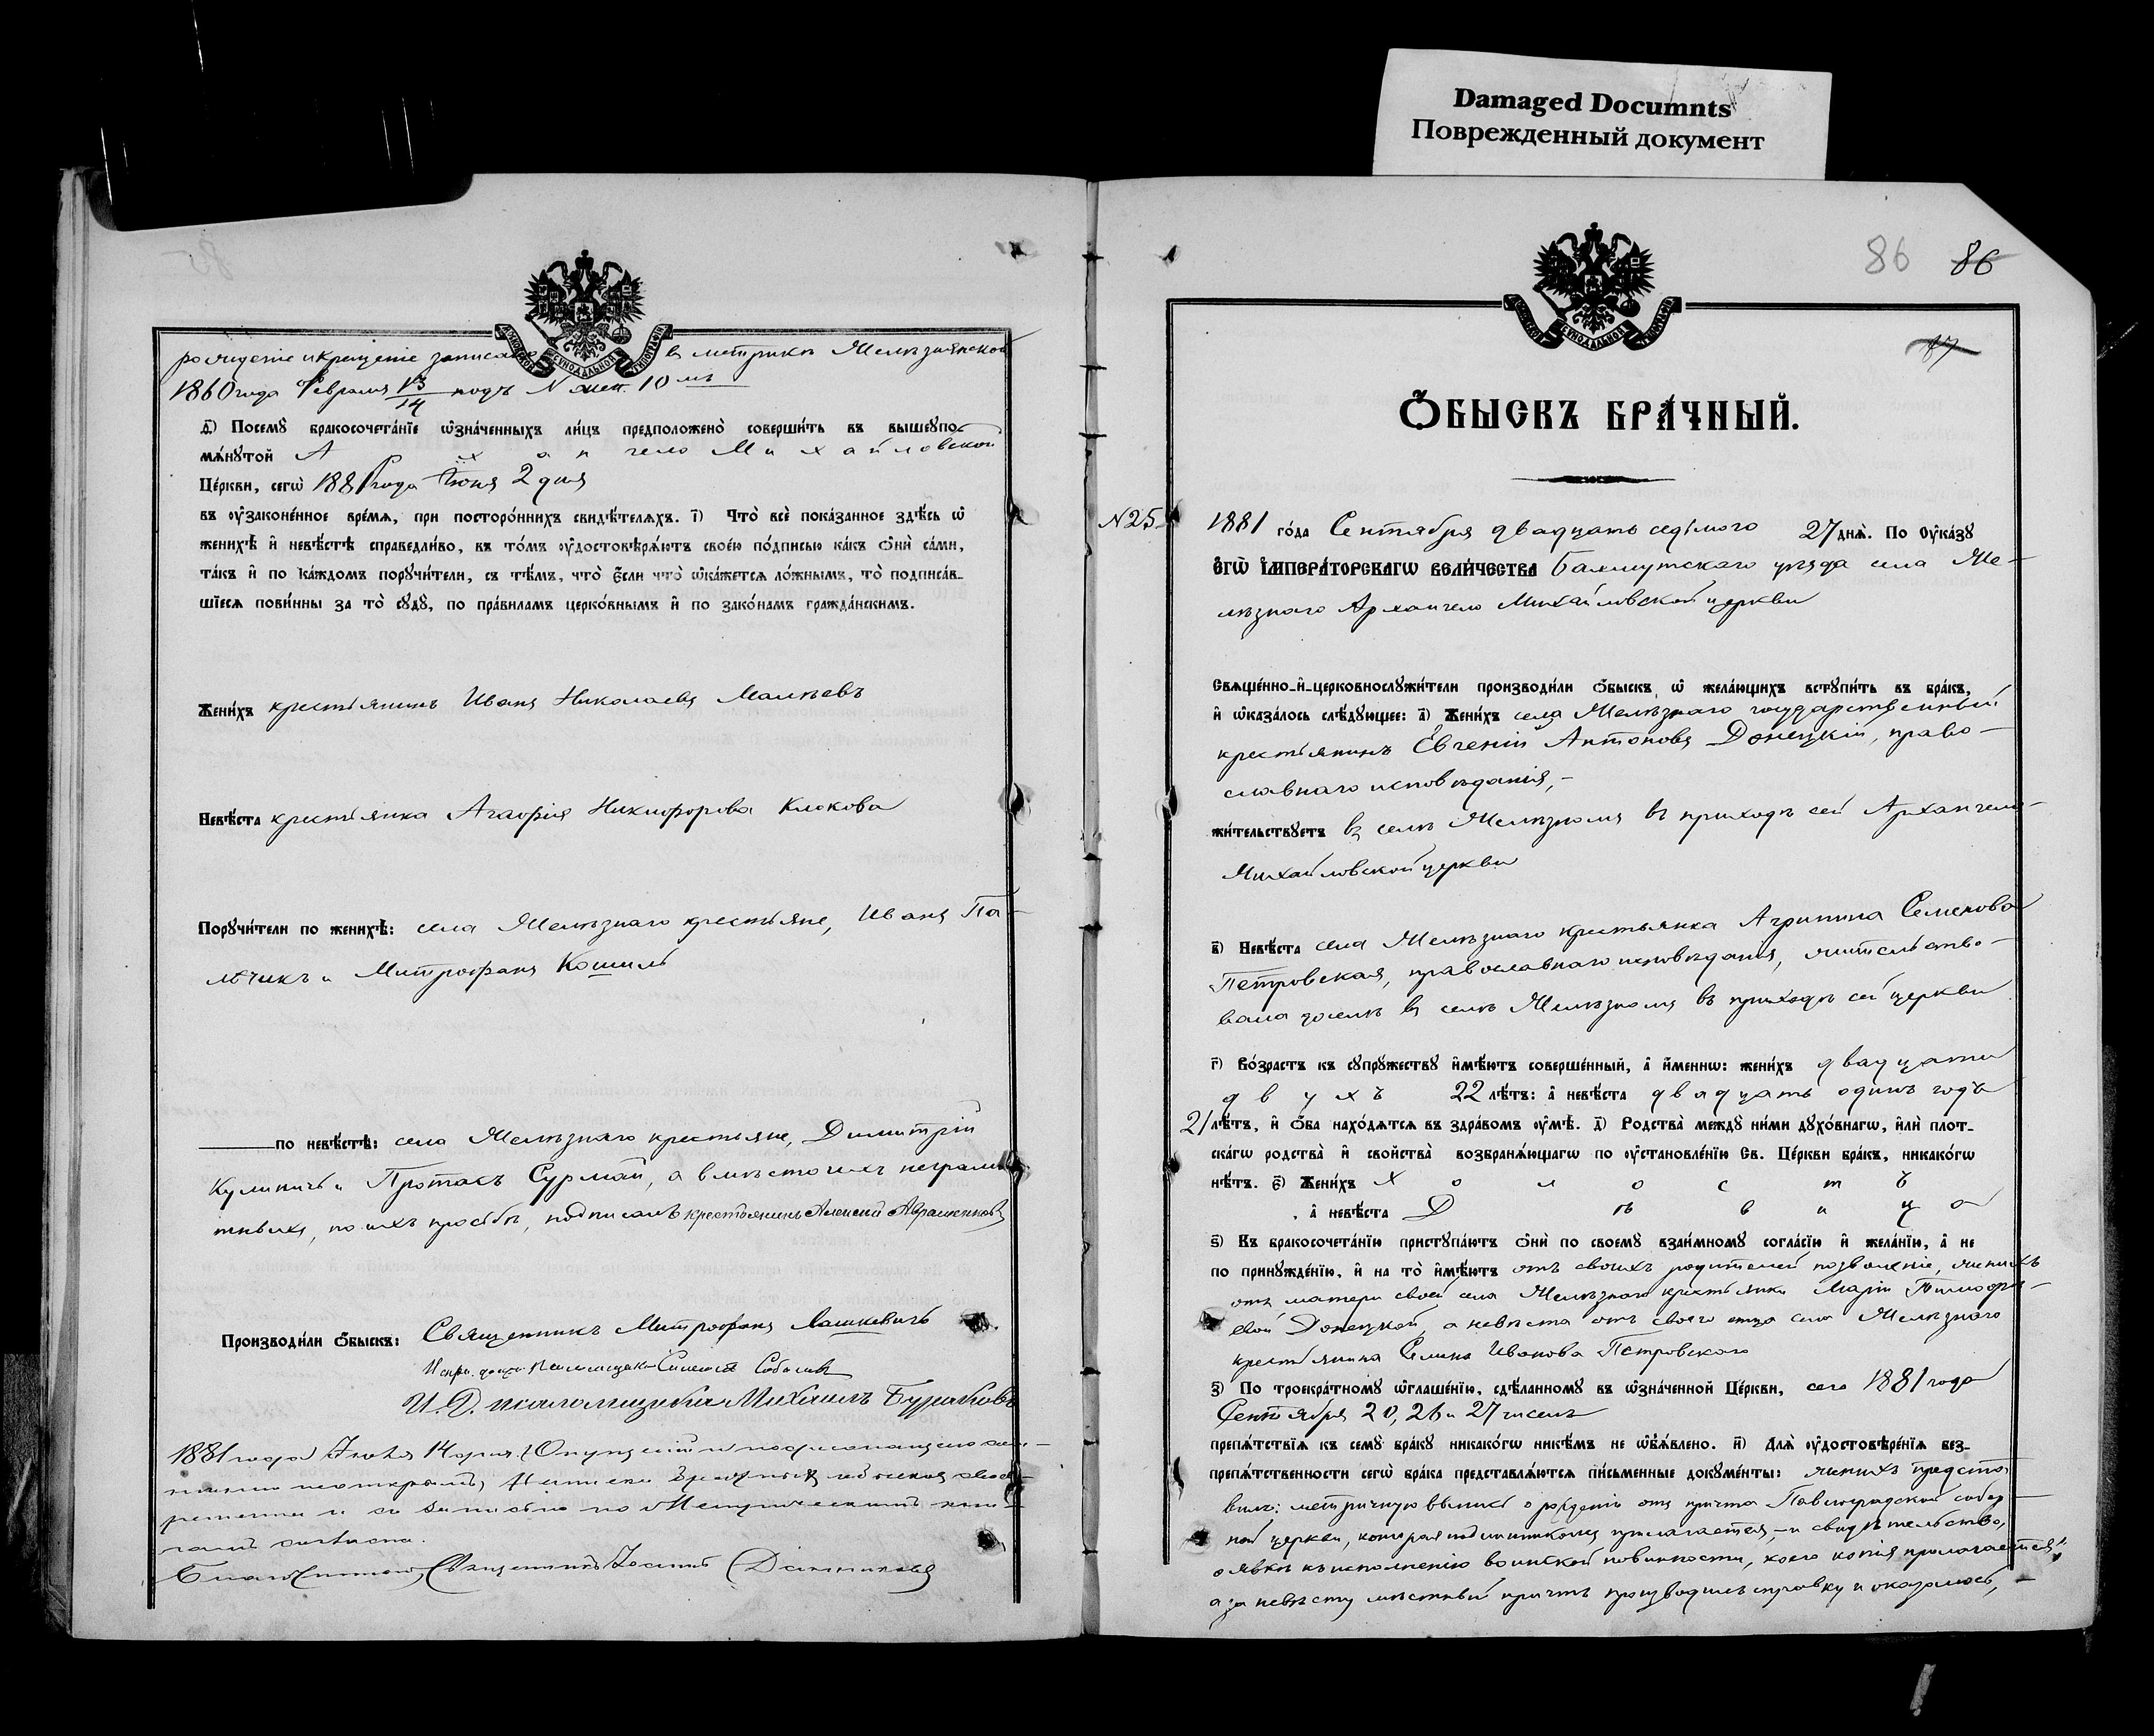 Damaged Documnts
Поврежденный документ
рожденіе и крещеніе записано въ метрикѣ Желѣзнянской
1860 года Февраля 13/14 подъ N жен. 10 мъ
д҃) Посемꙋ бракосочета́нїе ѡ҆зна́ченныхъ ли́цъ предположено̀ соверши́ть въ вышеꙋпо-
мѧ́нꙋтой Архангело Михайловской
Це́ркви, сегѡ̀ 1881 года Іюня 2 дня
въ ᲂу҆законе́нное вре́мѧ, при посторо́ннихъ свидѣ́телѧхъ. і҃) Что̀ всѐ пока́занное здѣ́сь ѡ҆
женихѣ̀ и҆ невѣ́стѣ справедли́во, въ то́мъ ᲂу҆достовѣрѧ́ютъ свое́ю по́дписью ка́къ ѻ҆нѝ са́ми,
та́къ и҆ по ка́ждомъ порꙋчи́тели, съ тѣ́мъ, что̀ є҆́сли что̀ ѡ҆ка́жетсѧ ло́жнымъ, то̀ подписа́в-
шїесѧ пови́нны за то̀ сꙋдꙋ̀, по пра́виламъ церко́внымъ и҆ по зако́намъ гражда́нскимъ.
Жени́хъ крестьянинъ Иванъ Николаевъ Малѣевъ
Невѣ́ста крестьянка Агафія Никифорова Клокова
Порꙋчи́тели по женихѣ̀: села Желѣзнаго крестьяне, Иванъ Па-
льчикъ и Митрофанъ Кошиль
по невѣ́стѣ: села Желѣзнаго крестьяне, Димитрій
Кулиничъ и Протасъ Сурмай, а вмѣсто ихъ неграмо
тныхъ, по ихъ просьбѣ, подписалъ крестьянинъ Алексій
Производи́ли ѻ҆́быскъ: Священникъ Митрофанъ Лашкевичъ
Испр. долж. Псаломщика Симеонъ Соболевъ
И. Д. псаломщика Михаилъ Бураковъ
1881 года Іюля 14 дня.
Благочинный, Священникъ Іоаннъ
86 86
87
Ѻ҆́БЫСКЪ БРА́ЧНЫЙ.
N 25
1881 го́да Сентября двадцать седьмого 27 днѧ̀. По ᲂу҆ка́зꙋ
Є҆гѡ̀ И҆мпера́торскагѡ Вели́чества Бахмутскаго уѣзда села Же-
лѣзнаго Архангело Михайловской церкви
Свѧще́нно-и҆-церковнослꙋжи́тели производи́ли ѻ҆́быскъ ѡ҆ жела́ющихъ встꙋпи́ть въ бра́къ,
и҆ ѡ҆каза́лось слѣ́дꙋющее: а҃) Жени́хъ села Желѣзнаго государственный
крестьянинъ Евгеній Антоновъ Донецкій, право-
славнаго исповѣданія,-
жи́тельствꙋетъ въ селѣ Желѣзномъ въ приходѣ сей Архангело-
Михайловской церкви
в҃) Невѣ́ста села Желѣзнаго крестьянка Агрипина Семенова
Петровская, православнаго исповѣданія, жительство-
вала доселѣ въ селѣ Желѣзномъ въ приходѣ сей церкви
г҃) Во́зрастъ къ сꙋпрꙋ́жествꙋ и҆мѣ́ютъ соверше́нный, а҆ и҆́меннѡ: жени́хъ двадцати
двухъ 22 лѣ́тъ: а҆ невѣ́ста двадцать одинъ годъ
21 лѣ́тъ, и҆ ѻ҆́ба нахо́дѧтсѧ въ здра́вомъ ᲂу҆мѣ̀. д҃) Родства̀ междꙋ ни́ми дꙋхо́внагѡ, и҆лѝ плот-
ска́гѡ родства̀ и҆ сво́йства возбранѧ́ющагѡ по ᲂу҆становле́нїю Св. Це́ркви бра́къ, никако́гѡ
нѣ́тъ. є҃) Жени́хъ Холостъ
, а҆ невѣ́ста Дѣвица
ѕ҃) Къ бракосочета́нїю пристꙋпа́ютъ ѻ҆нѝ по своемꙋ̀ взаи́мномꙋ согла́сїю и҆ жела́нїю, а҆ не
по принꙋжде́нїю, и҆ на то̀ и҆мѣ́ютъ отъ своихъ родителей позволеніе, женихъ
отъ матери своей села Желѣзнаго крестьянки Маріи Тимофе-
евой Донецкой, а невѣста отъ своего отца села Желѣзнаго
крестьянина Семена Иванова Петровскаго
з҃) По троекра́тномꙋ ѡ҆глаше́нїю, сдѣ́ланномꙋ въ ѡ҆зна́ченной Це́ркви, сего 1881 года
Сентября 20, 26 и 27 чиселъ
препѧ́тствїѧ къ семꙋ̀ бра́кꙋ никако́гѡ никѣ́мъ не ѡ҆б̾ѧ́влено. и҃) Для̀ ᲂу҆достовѣре́нїѧ без-
препѧ́тственности сегѡ̀ бра́ка представлѧ́ютсѧ пи́сьменные докꙋме́нты: женихъ предста-
вилъ: метричную выпись о рожденіи отъ причта Павлоградской собор
ной церкви, которая подлинникомъ прилагается,- и свидѣтельство,
о явкѣ къ исполненію воинской повинности, коего копія прилагается;
а за невѣсту мѣстный причтъ производилъ справку и оказалось,-